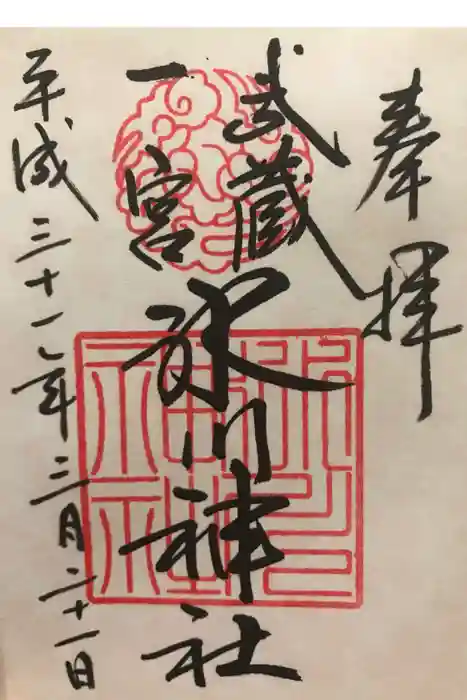 奉拝
武蔵
一宮
氷川神社
平成三十一年三月二十一日